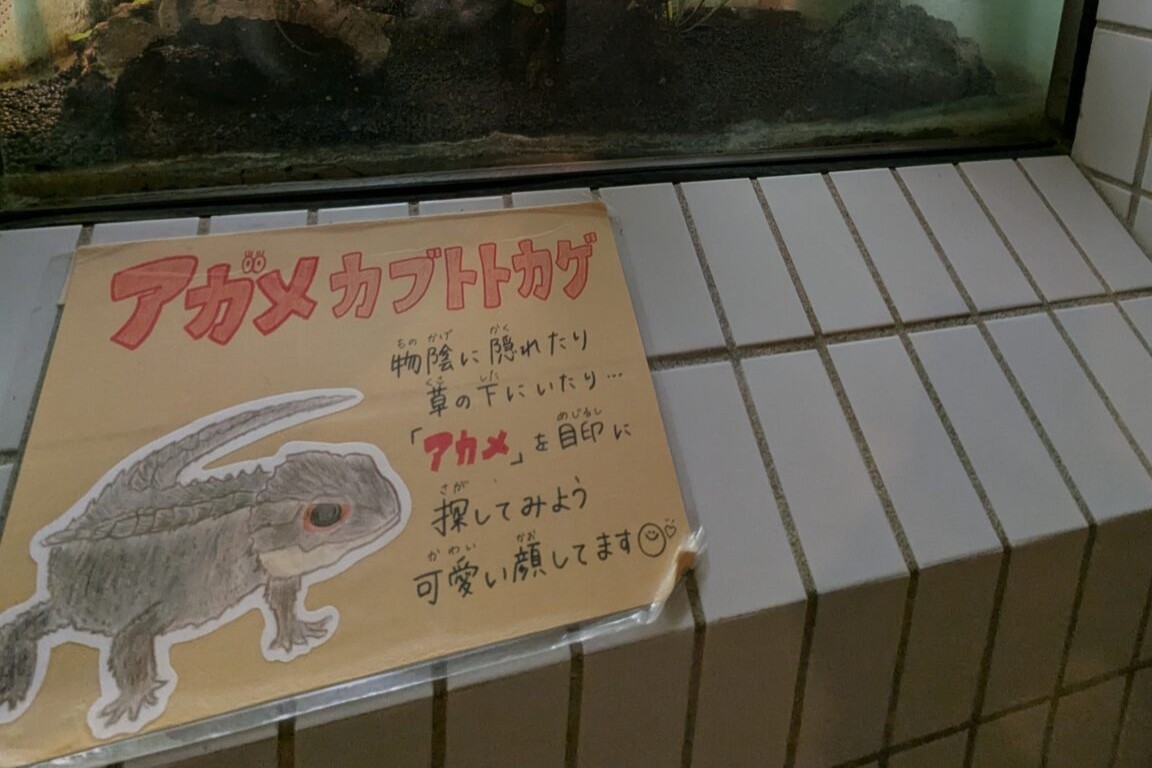 アカﾞメカブトトカゲ
物陰に隠れたり
草の下にいたり…
「アカメ」を目印に
探してみよう
可愛い顔してます